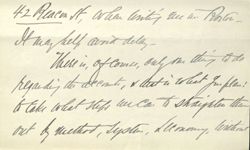 42 Beacon St, when writing me in Boston.
It may help avoid delay.
There is, of course, only one thing to do
regarding the accounts, & that is what you plan:
to take what steps we can to straighten them
out by method, system, & economy, without